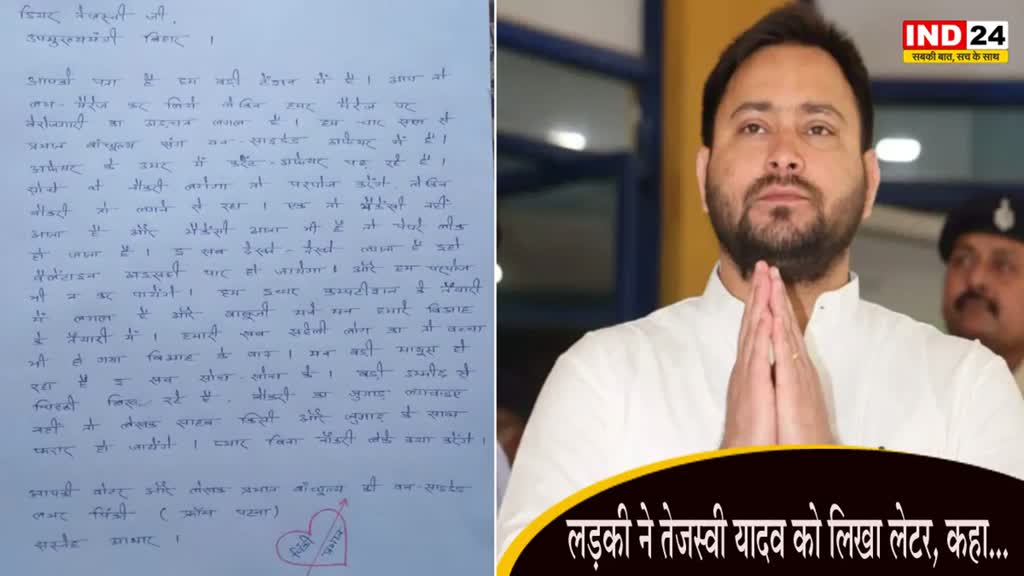 डियर तेजस्वी जी,
उपमुख्यमंत्री बिहार ।
आपको पता है हम बड़ी टेंशन में है । आप तो
लभ-मैरेज कर लिये लेकिन हमर मैरेज पर
बेरोजगारी का ग्रहण लगल है । हम चार साल से
प्रभात बांधुल्य संग वन-साइडेड अफेयर में है ।
अफेयर के उमर में करेंट-अफेयर पढ़ रहे है ।
सोचे थे नौकरी लगेगा तो परपोज करेंगे, लेकिन
नौकरी तो लगने से रहा । एक तो भैकेंसी नहीं
आता है और भैकेंसी आता भी है तो पेपरे लीक
हो जाता है । इ सब देखते-देखते लगता है इहो
वैलेंटाइन पार हो जायेगा । और हम परपोज
भी न कर पायेंगे । हम इधर कम्पटीशन के तैयारी
में लगल है और बाबूजी मने मन हमारे बिआह
के तैयारी में । हमारी सब सहेली लोग का तो बच्चा
भी हो गया बिआह के बाद । मन बड़ी मायूस हो
रहा है इ सब सोच-सोच के । बड़ी उम्मीद से
चिट्ठी लिख रहे है, नौकरी का जुगाड़ लगवाइए
नहीं तो लेखक साहब किसी और जुगाड़ के साथ
फरार हो जायेंगे । प्यार बिना नौकरी लेके क्या करेंगे ।
आपकी वोटर और लेखक प्रभात बांधुल्य की वन-साइडेड
लभर पिंकी ( फ्रॉम पटना )
सस्नेह आभार ।
पिंकी प्रभात
IND24
सबकी बात, सच के साथ
लड़की ने तेजस्वी यादव को लिखा लेटर, कहा...